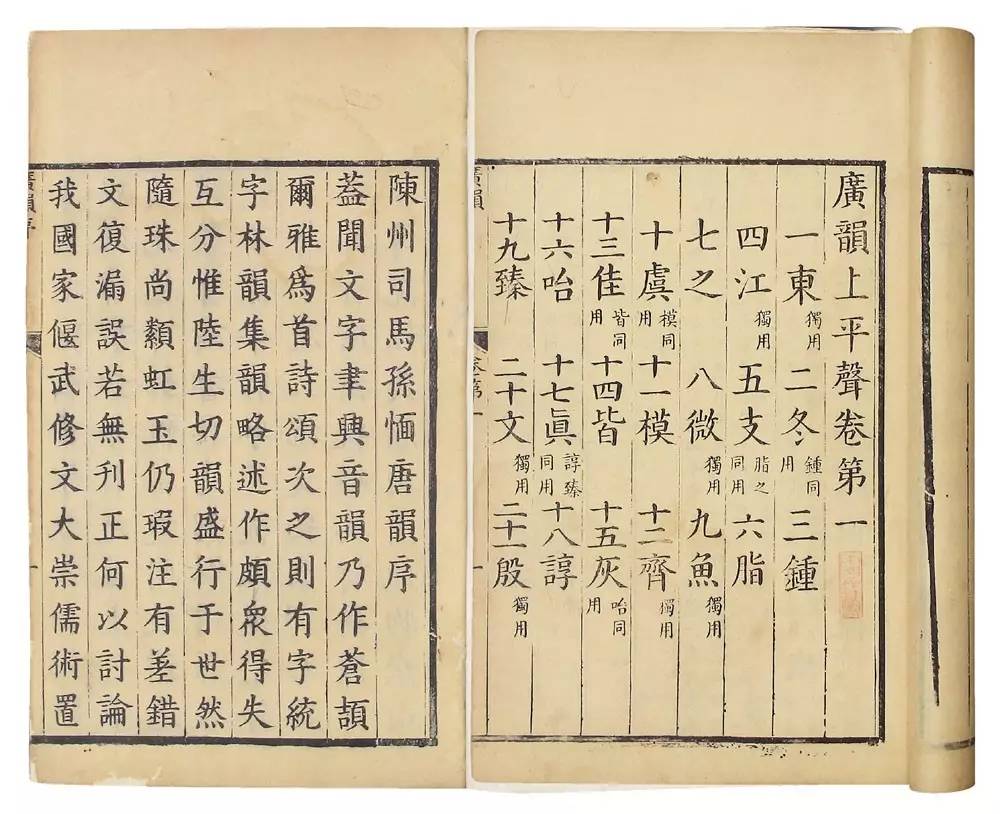 廣韻上平聲卷第一
一東獨用 二冬鍾同用 三鍾
四江獨用 五支脂之同用 六脂
七之 八微獨用 九魚獨用
十虞模同用 十一模 十二齊獨用
十三佳皆同用 十四皆 十五灰咍同用
十六咍 十七眞諄臻同用 十八諄
十九臻 二十文獨用 二十一殷獨用
廣韻 卷第一
陳州司馬孫愐唐韻序
蓋聞文字聿興音韻乃作蒼頡
爾雅爲首詩頌次之則有字統
字林韻集韻略述作頗衆得失
互分惟陸生切韻盛行于世然
隨珠尚纇虹玉仍瑕注有差錯
文復漏誤若無刊正何以討論
我國家偃武修文大崇儒術置
廣韻序 一